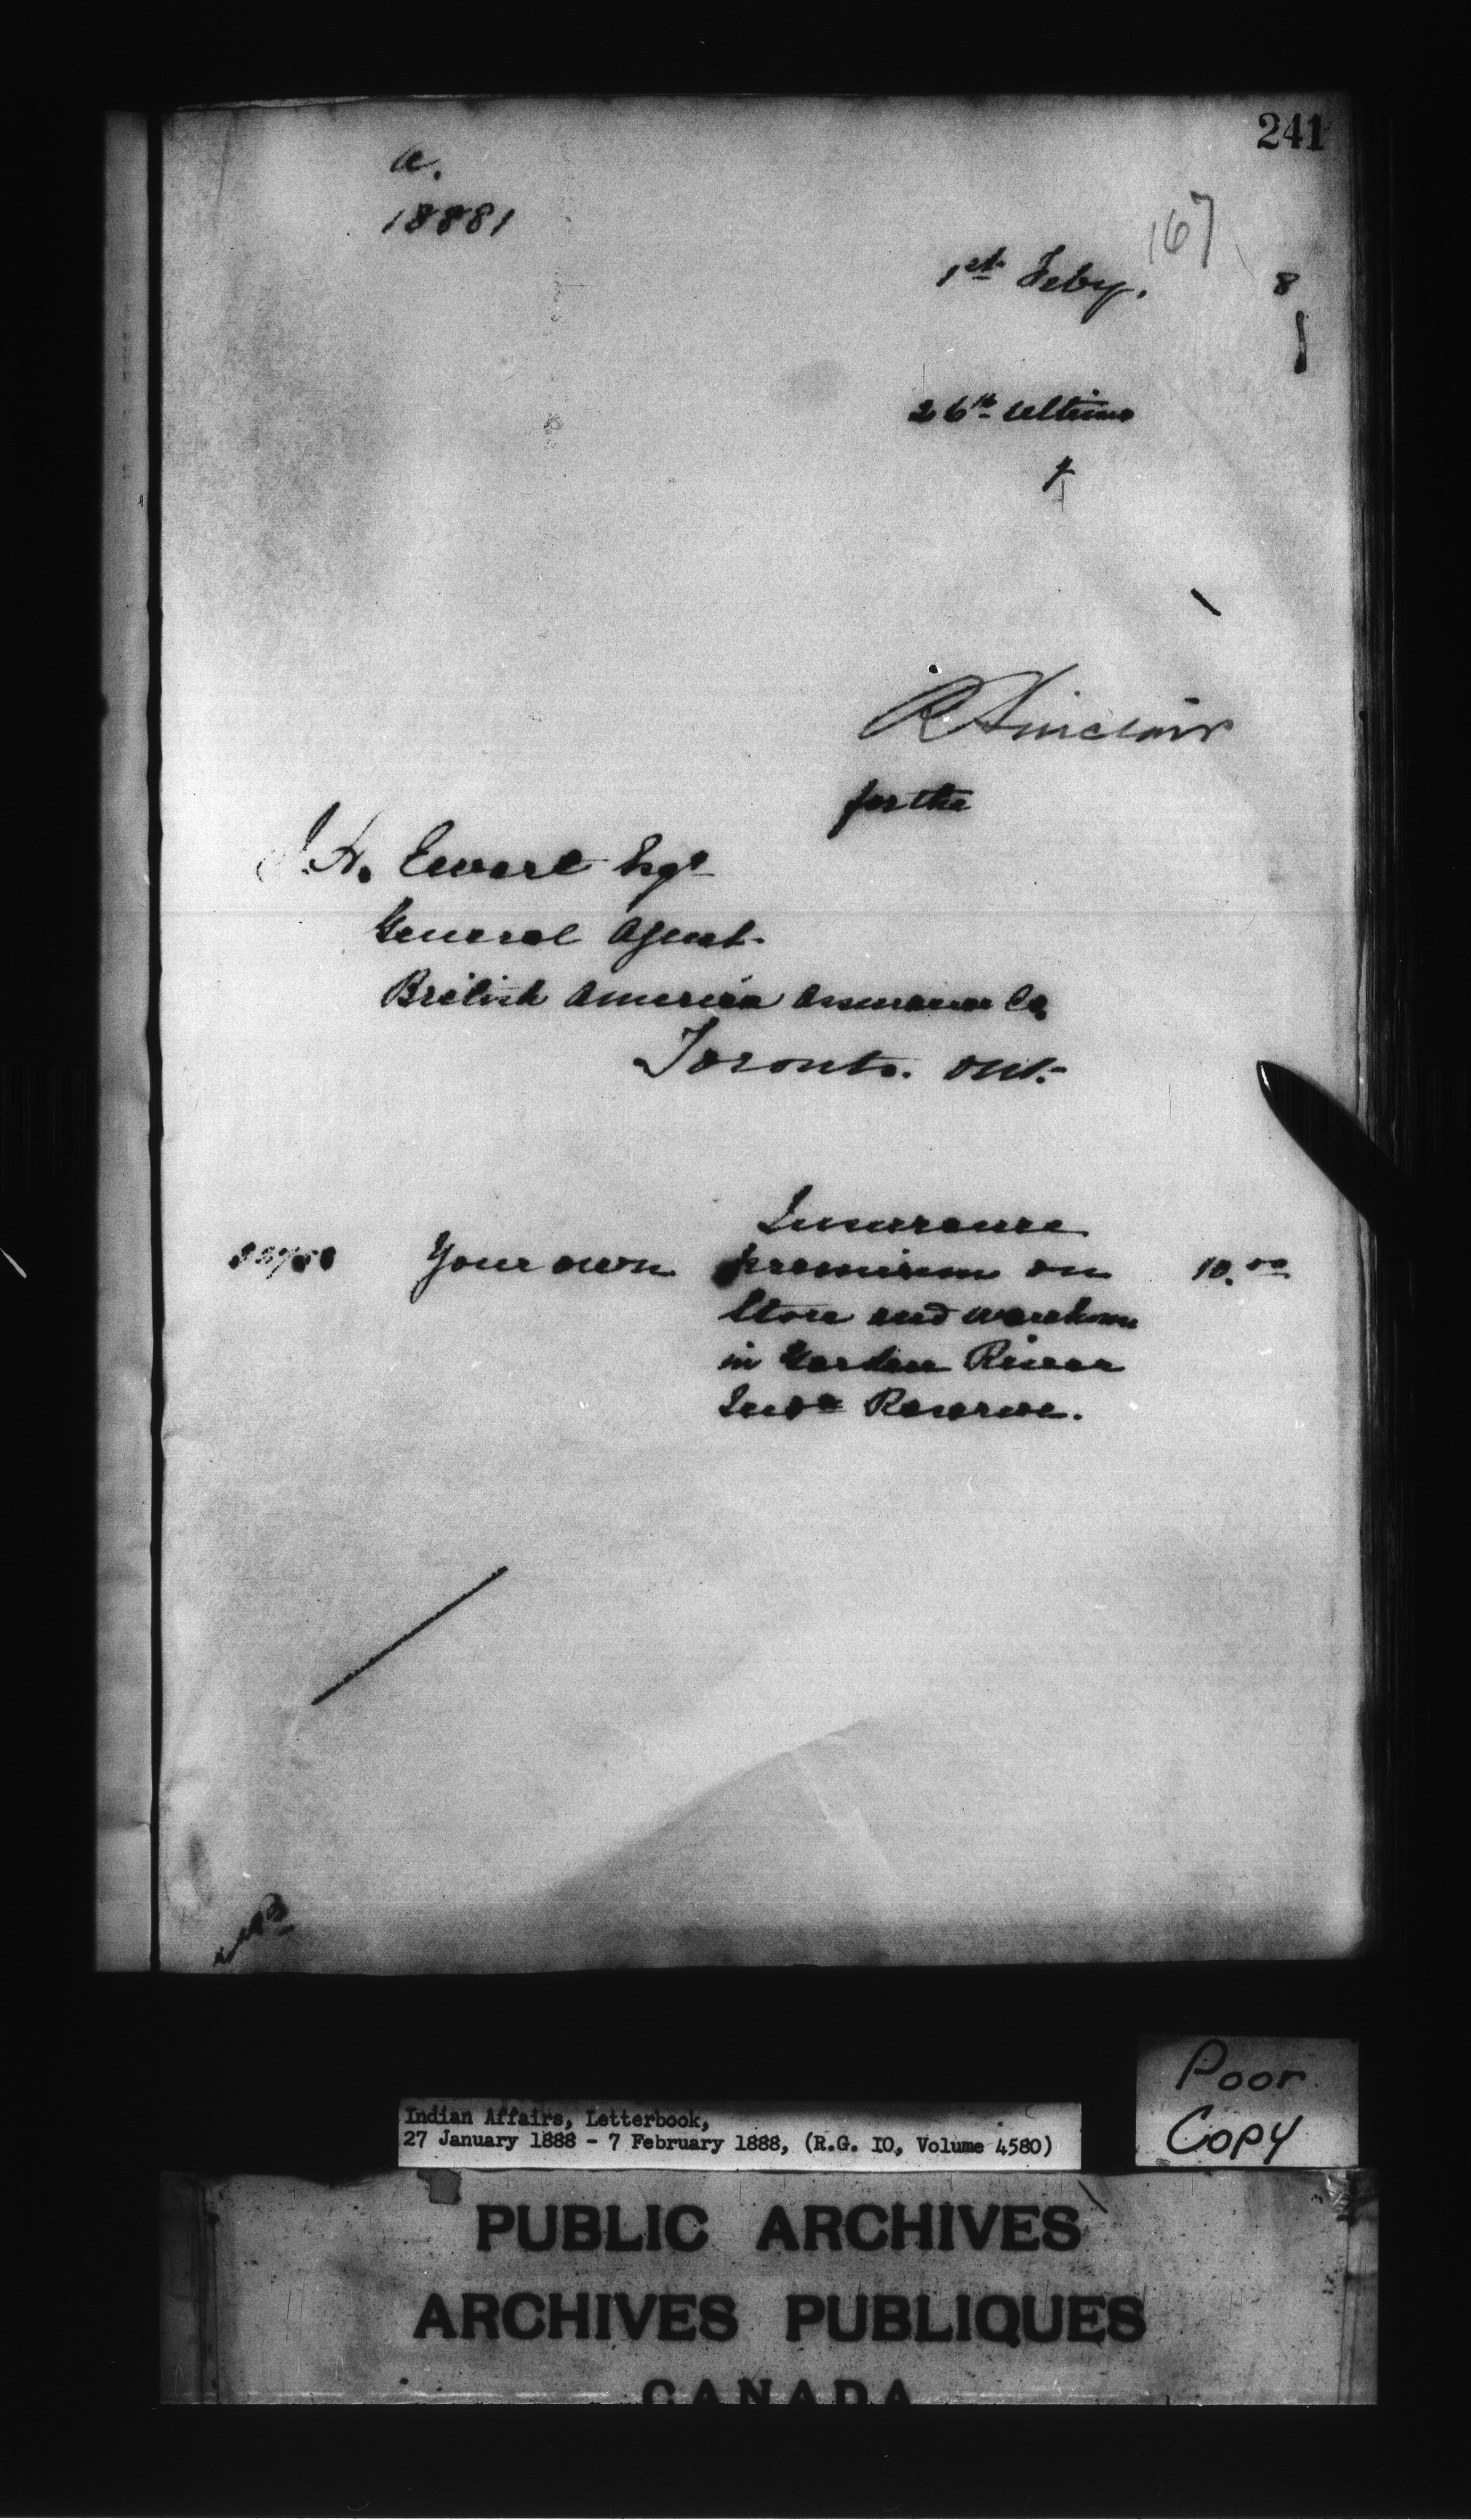 241
a.
18881
167
1st Feby. 8
26th Ultimo
R Sinclair
for the
J.H. Ewart Esqr
General Agent
British America Assurance Co.
Toronto. Ont.
Insurance
Your own premium on 10.00
Store and warehouse
in Garden River
Indn Reserve.
Poor
Copy
Indian Affairs, Letterbook,
27 January 1888 - 7 February 1888, (R.G. 10, Volume 4580)
PUBLIC ARCHIVES
ARCHIVES PUBLIQUES
CANADA